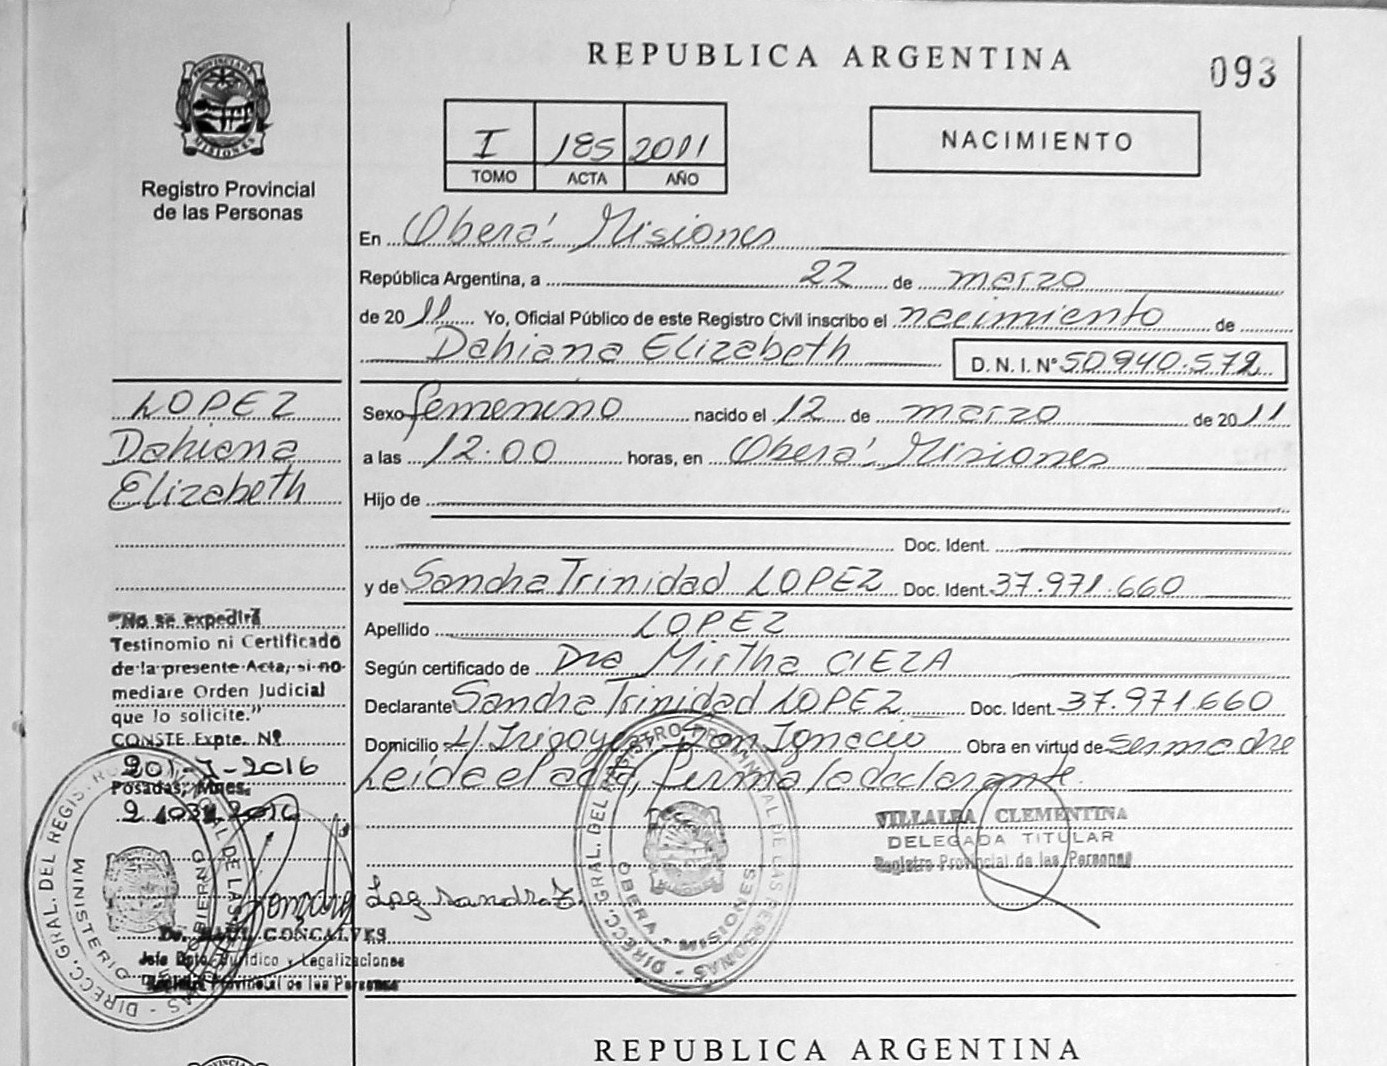 REPUBLICA ARGENTINA
093
PROVINCIA DE MISIONES
Registro Provincial
de las Personas
I 185 2011
TOMO ACTA AÑO
NACIMIENTO
En Oberá Misiones
República Argentina, a 22 de marzo
de 2011 Yo, Oficial Público de este Registro Civil inscribo el nacimiento de
Dahiana Elizabeth D. N. I. N° 50.940.572
Sexo femenino nacido el 12 de marzo de 2011
a las 12.00 horas, en Oberá Misiones
Hijo de
Doc. Ident.
y de Sandra Trinidad LOPEZ Doc. Ident. 37.971.660
Apellido LOPEZ
Según certificado de Dra Mirtha CIEZA
Declarante Sandra Trinidad LOPEZ Doc. Ident. 37.971.660
Domicilio H/ Irigoyen San Ignacio Obra en virtud de ser madre
Leída el acta, firma la declarante.
VILLALBA CLEMENTINA
DELEGADA TITULAR
Registro Provincial de las Personas
Lopez Sandra T.
DIRECC. GRAL. DEL REGISTRO PROVINCIAL DE LAS PERSONAS
OBERA - MISIONES
LOPEZ
Dahiana
Elizabeth
"No se expedirá
Testinomio ni Certificado
de la presente Acta, si no
mediare Orden Judicial
que lo solicite."
CONSTE Expte. Nº
201-J-2016
Posadas, Mnes.
MINISTERIO DE GOBIERNO
Dr. RAUL GONCALVES
Jefe Dpto. Jurídico y Legalizaciones
Registro Provincial de las Personas
REPUBLICA ARGENTINA